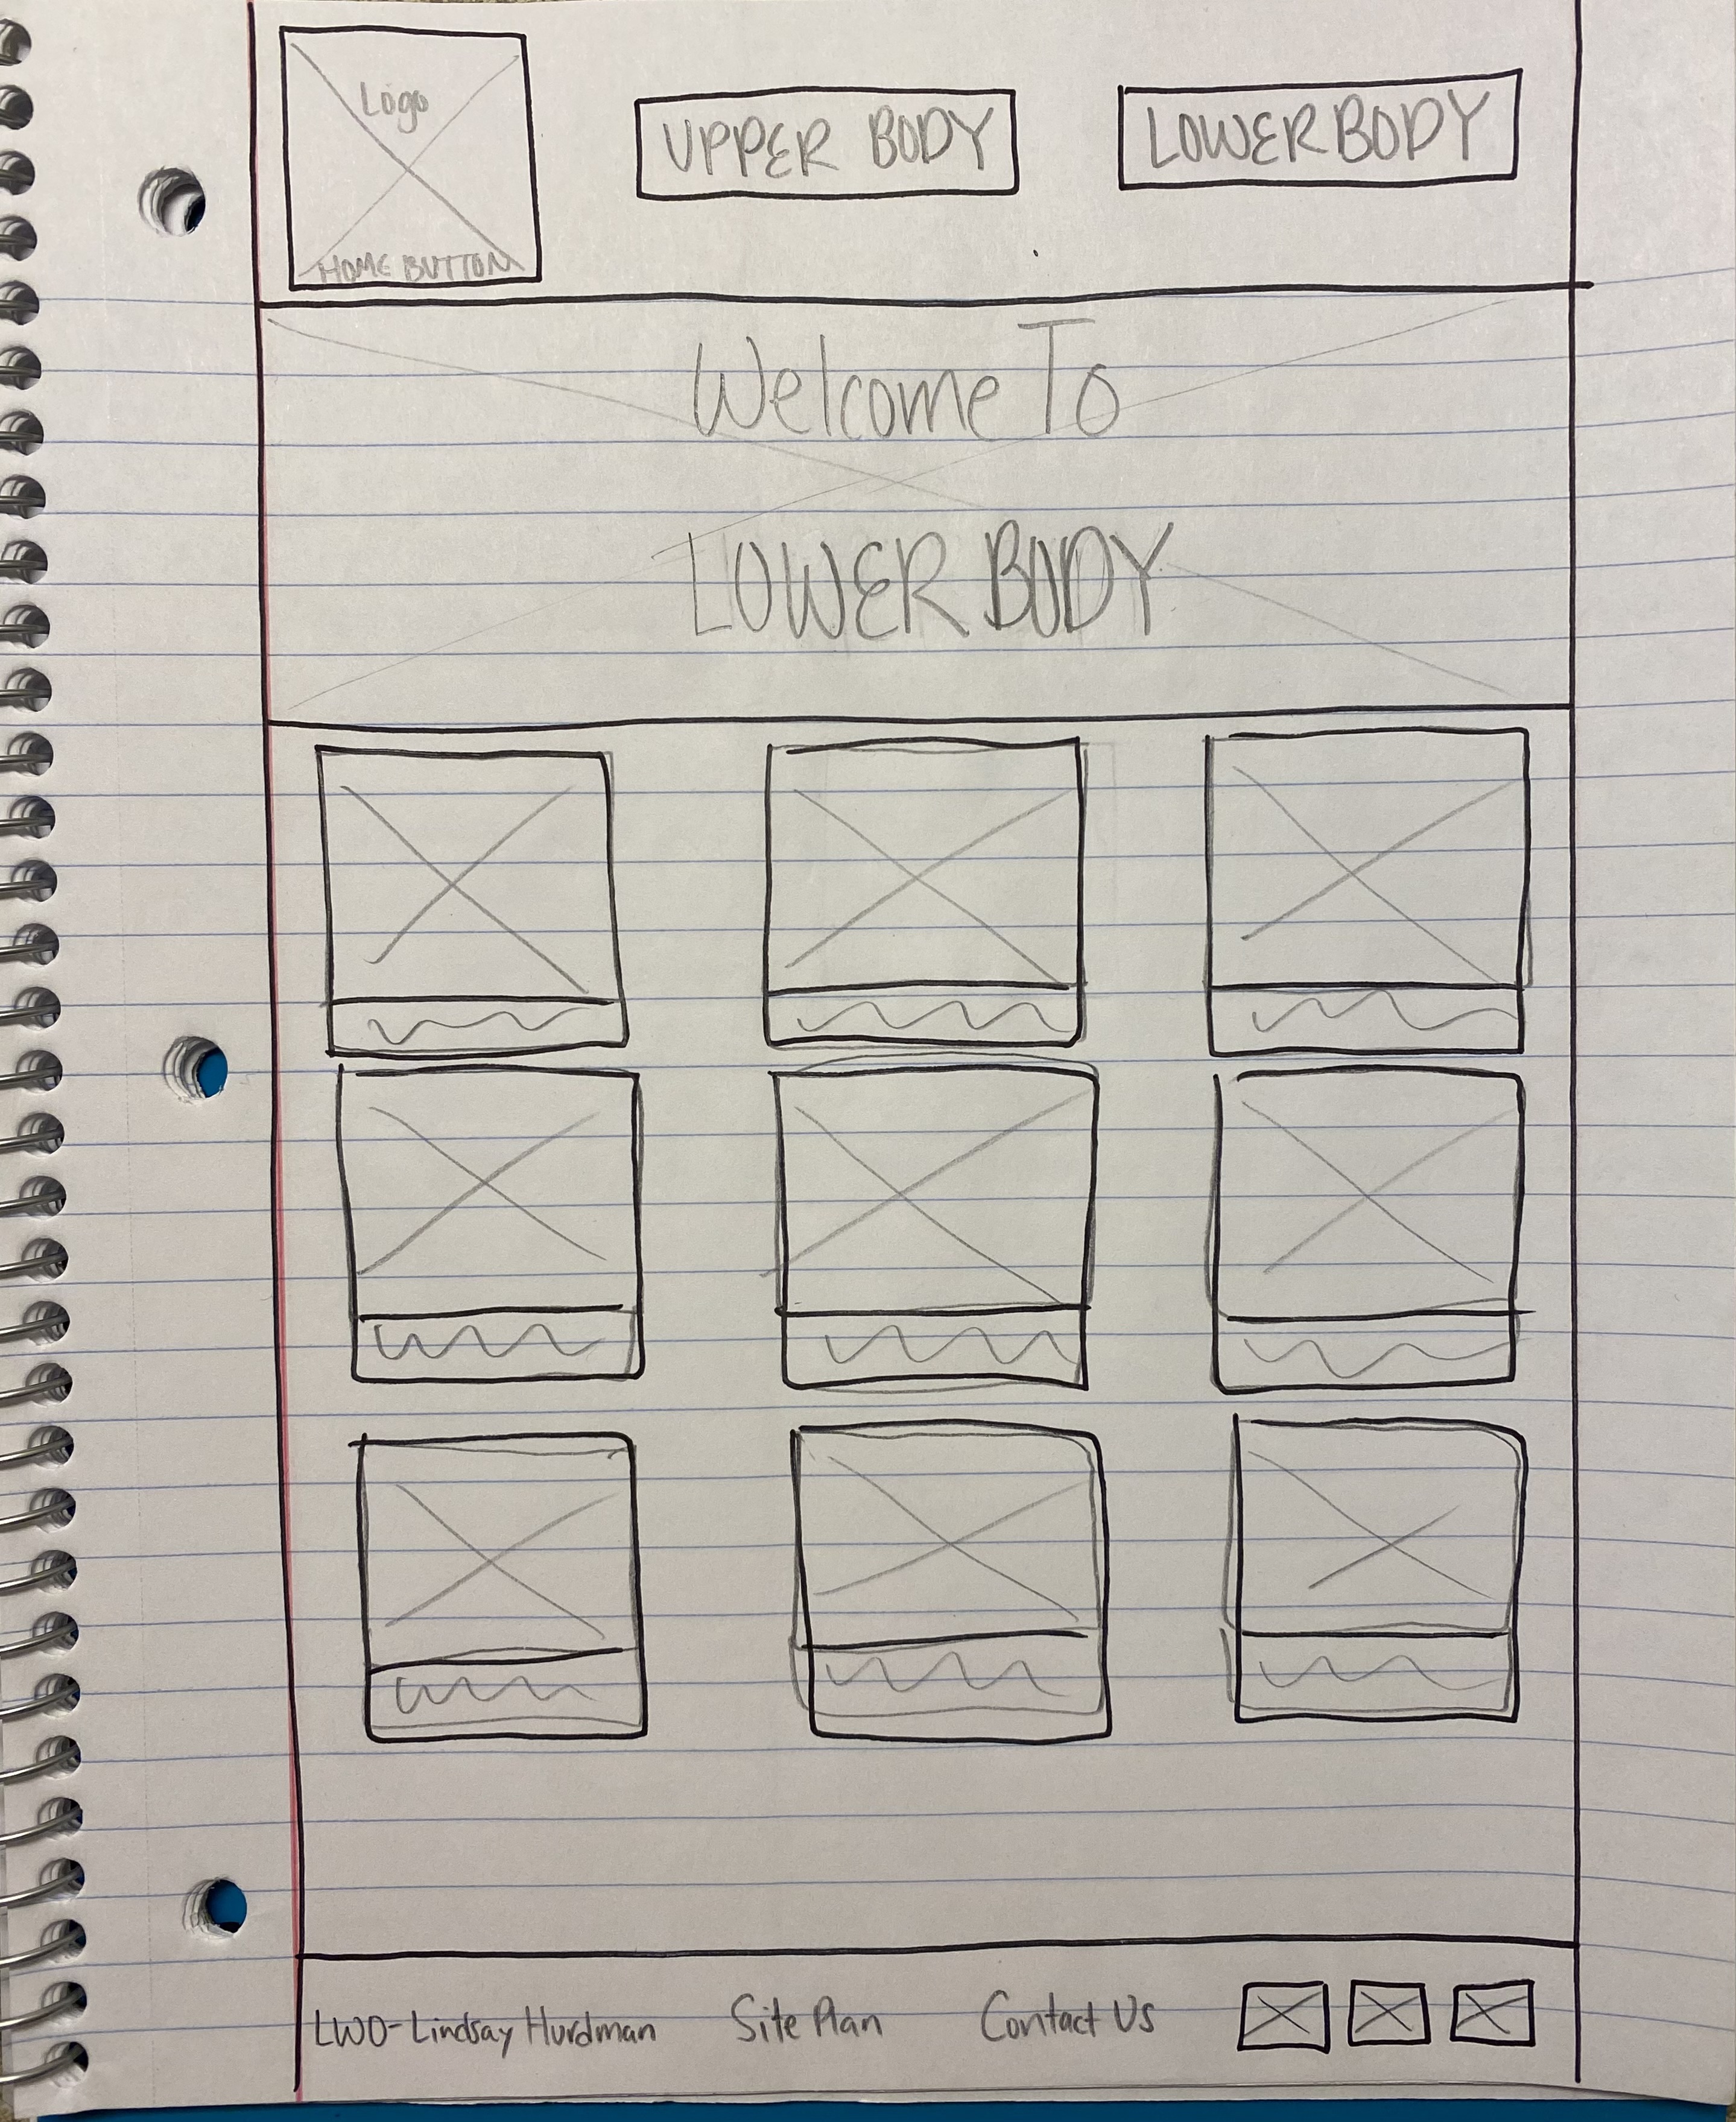 Logo
HOME BUTTON
UPPER BODY
LOWER BODY
Welcome To
LOWER BODY
LWO-Lindsay Hurdman
Site Plan
Contact Us